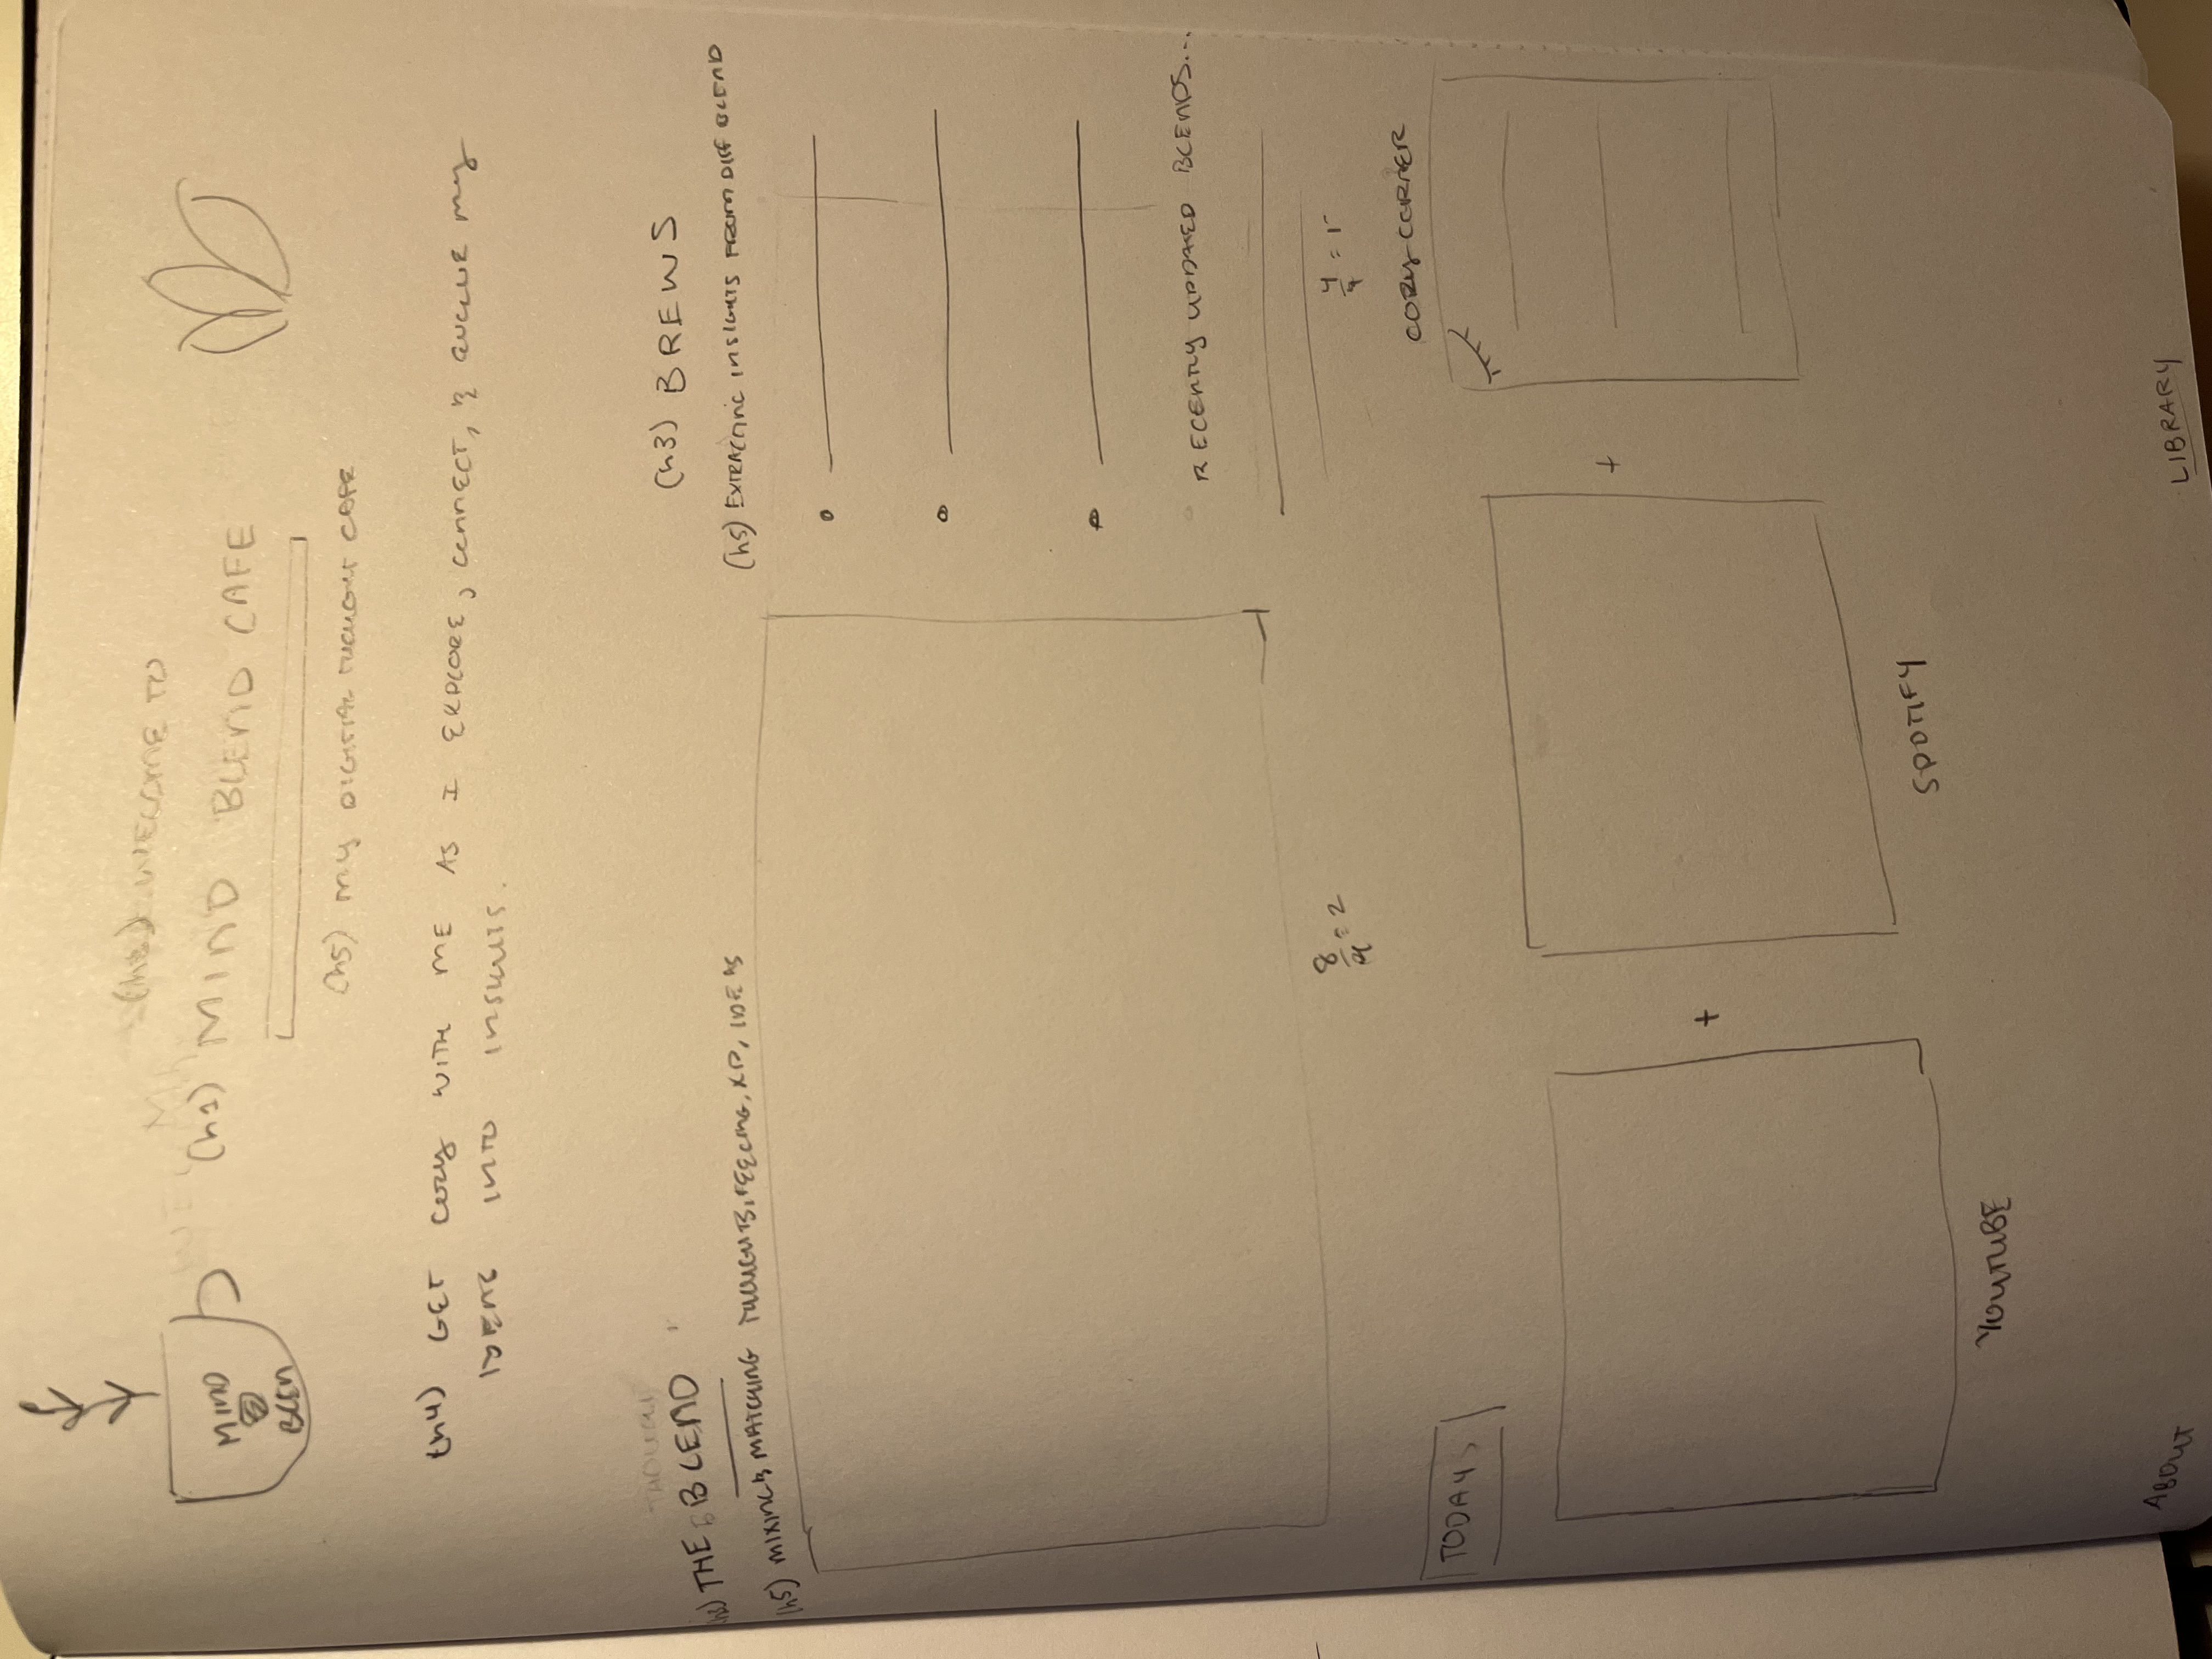 MIND
BLEN
WELCOME TO
(h1) MIND BLEND CAFE
(h5) MY DIGITAL THOUGHT CAFE
(h4) GET COZY WITH ME AS I EXPLORE, CONNECT, & EVOLVE MY
IDEAS INTO INSIGHTS.
THOUGHT
THE BLEND
(h5) MIXING & MATCHING THOUGHTS, FEELING, XP, IDEAS
(h3) BREWS
(h5) EXTRACTING INSIGHTS FROM DIFF BLEND
RECENTLY UPDATED BLENDS...
8
= 2
4
COZY CORNER
TODAYS
+
+
YOUTUBE
SPOTIFY
ABOUT
LIBRARY